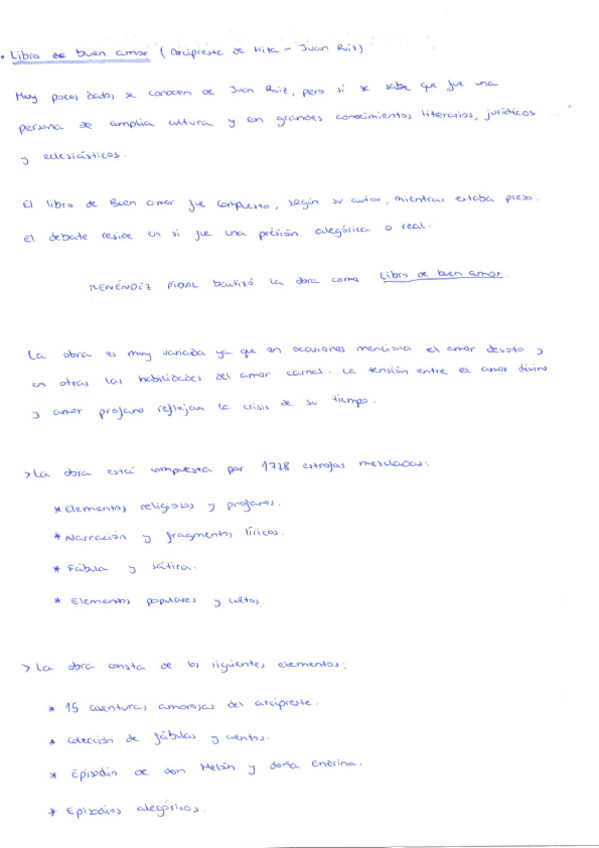 • Libro de buen amor (Arcipreste de Hita - Juan Ruiz)
Muy pocos datos se conocen de Juan Ruiz, pero sí se sabe que fue una
persona de amplia cultura y con grandes conocimientos literarios, jurídicos ...
y eclesiásticos.
El libro de Buen amor fue compuesto, según su autor, mientras estaba preso.
El debate reside en si fue una prisión alegórica o real.
MENÉNDEZ PIDAL bautizó la obra como Libro de buen amor.
La obra es muy variada ya que en ocasiones menciona el amor devoto y
en otras las habilidades del amor carnal. La tensión entre el amor divino
y amor profano reflejan la crisis de su tiempo.
> La obra está compuesta por 1728 estrofas mezcladas:
* Elementos religiosos y profanos.
* Narración y fragmentos líricos.
* Fábula y sátira.
* Elementos populares y cultos.
> La obra consta de los siguientes elementos:
* 15 aventuras amorosas del arcipreste.
* Colección de fábulas y cuentos.
* Episodio de don Melón y doña Endrina.
* Episodios alegóricos.